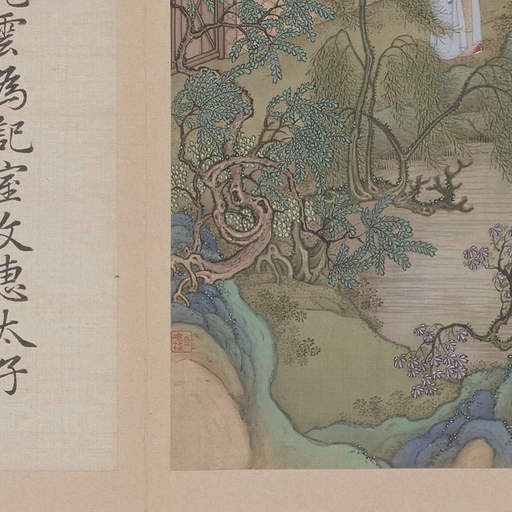 雲為記室文惠太子